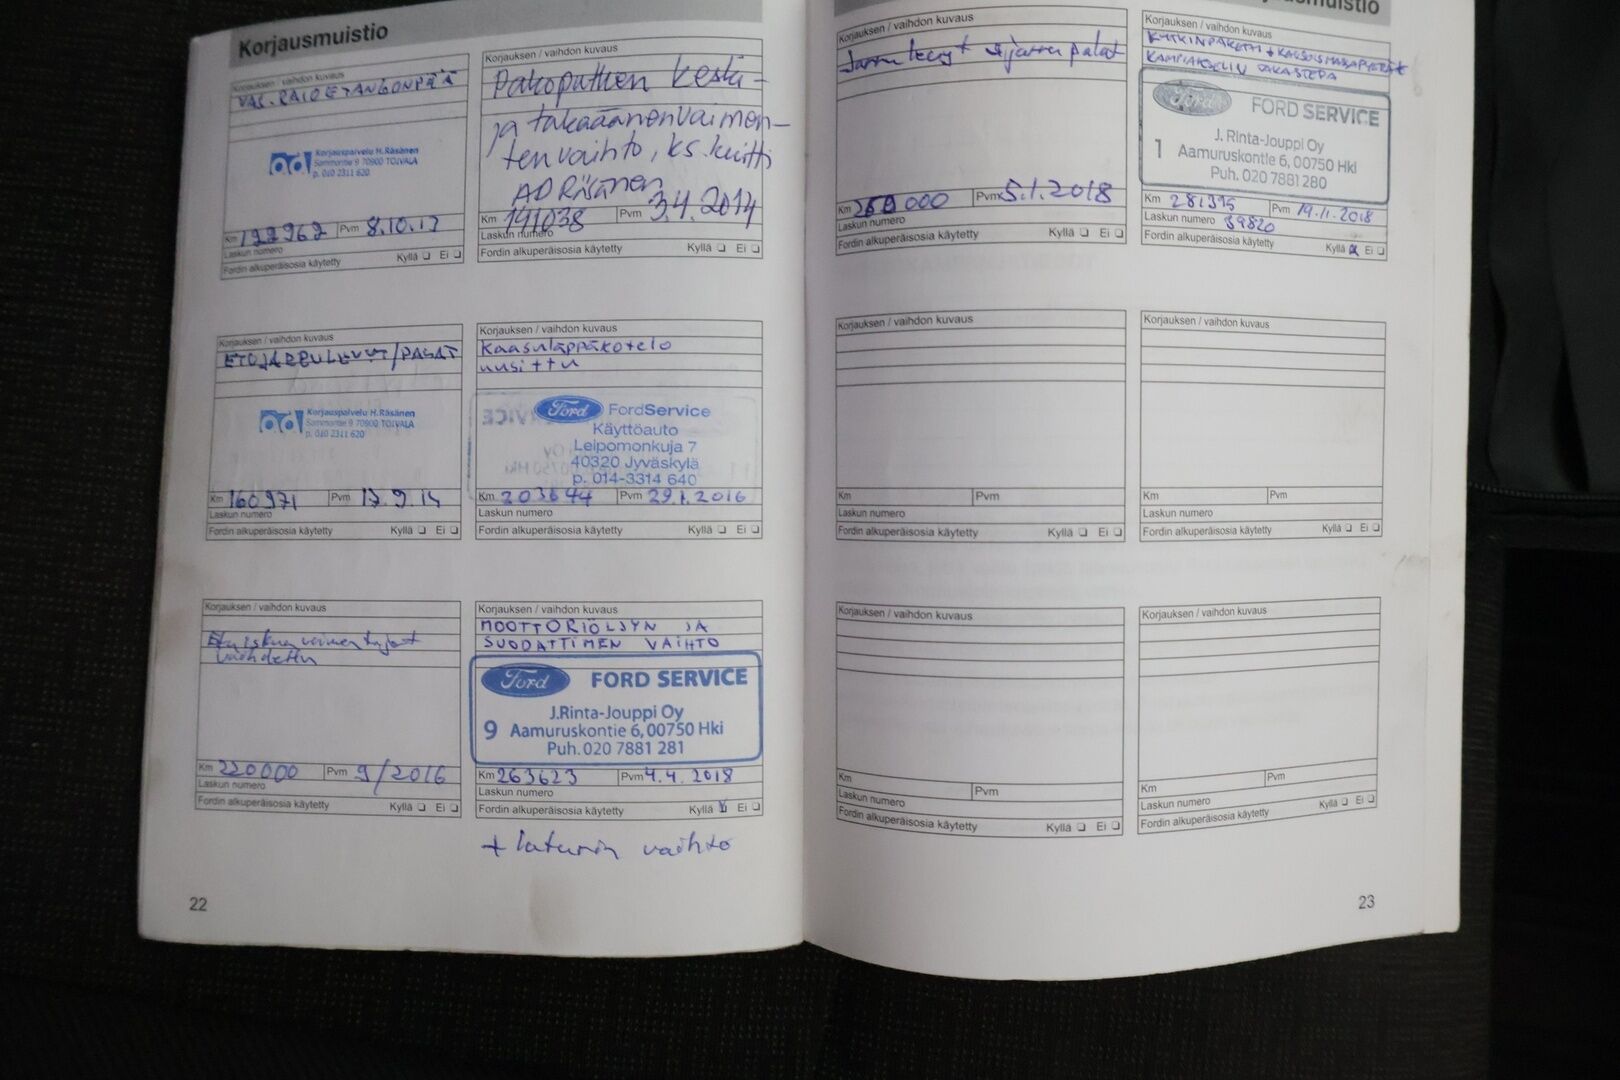 Korjausmuistio
Korjauksen / vaihdon kuvaus
VAS. RAIDETANGONPÄÄ
Korjauspalvelu H.Räsänen
Sammontie 9 70900 TOIVALA
p. 010 2311 620
Km 122962 Pvm 8.10.13
Laskun numero
Fordin alkuperäisosia käytetty Kyllä ❏ Ei ❏
Korjauksen / vaihdon kuvaus
Pakoputken keski-
ja takaäänenvaimen-
ten vaihto, ks. kuitti
AD Räsänen
Km 141038 Pvm 3.4.2014
Laskun numero
Fordin alkuperäisosia käytetty Kyllä ❏ Ei ❏
Korjauksen / vaihdon kuvaus
ETUJARRULEVYT/PALAT
Korjauspalvelu H.Räsänen
Sammontie 9 70900 TOIVALA
p. 010 2311 620
Km 160971 Pvm 17.9.14
Laskun numero
Fordin alkuperäisosia käytetty Kyllä ❏ Ei ❏
Korjauksen / vaihdon kuvaus
Kaasuläppäkotelo
uusittu
Ford FordService
Käyttöauto
Leipomonkuja 7
40320 Jyväskylä
p. 014-3314 640
Km 203644 Pvm 29.1.2016
Laskun numero
Fordin alkuperäisosia käytetty Kyllä ❏ Ei ❏
Korjauksen / vaihdon kuvaus
Etuiskunvaimentajat
vaihdettu
Km 220000 Pvm 9/2016
Laskun numero
Fordin alkuperäisosia käytetty Kyllä ❏ Ei ❏
Korjauksen / vaihdon kuvaus
MOOTTORIÖLJYN JA
SUODATTIMEN VAIHTO
Ford FORD SERVICE
J.Rinta-Jouppi Oy
9 Aamuruskontie 6, 00750 Hki
Puh. 020 7881 281
Km 263623 Pvm 4.4.2018
Laskun numero
Fordin alkuperäisosia käytetty Kyllä ❏ Ei ❏
+ laturin vaihto
22
Korjausmuistio
Korjauksen / vaihdon kuvaus
Jarrulevyt + jarrupalat
Km 260000 Pvm 5.1.2018
Laskun numero
Fordin alkuperäisosia käytetty Kyllä ❏ Ei ❏
Korjauksen / vaihdon kuvaus
KYTKINPAKETTI + KAKSOISMASSAPYÖRÄ +
KAMPIAKSELIN TAKASTEFA
Ford FORD SERVICE
J. Rinta-Jouppi Oy
1 Aamuruskontie 6, 00750 Hki
Puh. 020 7881 280
Km 281395 Pvm 19.11.2018
Laskun numero 89820
Fordin alkuperäisosia käytetty Kyllä ❏ Ei ❏
Korjauksen / vaihdon kuvaus
Km Pvm
Laskun numero
Fordin alkuperäisosia käytetty Kyllä ❏ Ei ❏
Korjauksen / vaihdon kuvaus
Km Pvm
Laskun numero
Fordin alkuperäisosia käytetty Kyllä ❏ Ei ❏
Korjauksen / vaihdon kuvaus
Km Pvm
Laskun numero
Fordin alkuperäisosia käytetty Kyllä ❏ Ei ❏
Korjauksen / vaihdon kuvaus
Km Pvm
Laskun numero
Fordin alkuperäisosia käytetty Kyllä ❏ Ei ❏
23